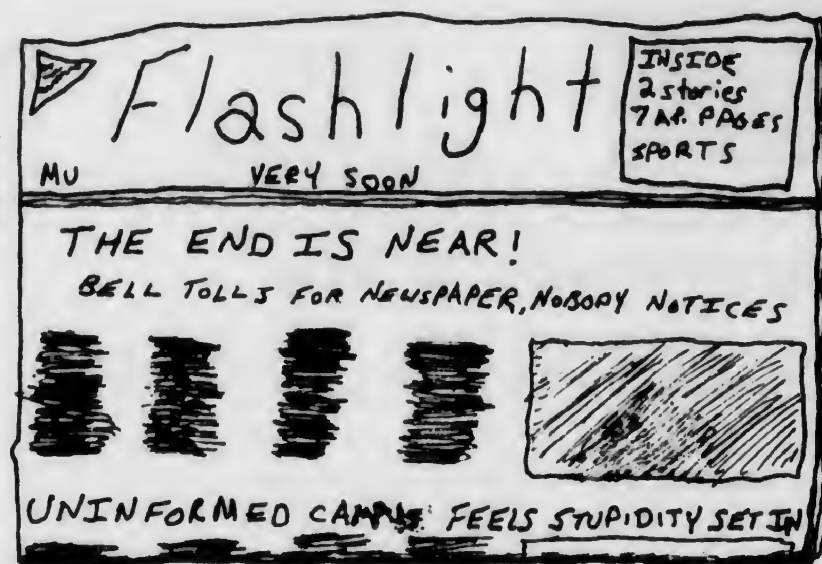 Flashlight
INSIDE
2 stories
7 AP. PAGES
SPORTS
MU VERY SOON
THE END IS NEAR!
BELL TOLLS FOR NEWSPAPER, NOBODY NOTICES
UNINFORMED CAMPUS FEELS STUPIDITY SET IN